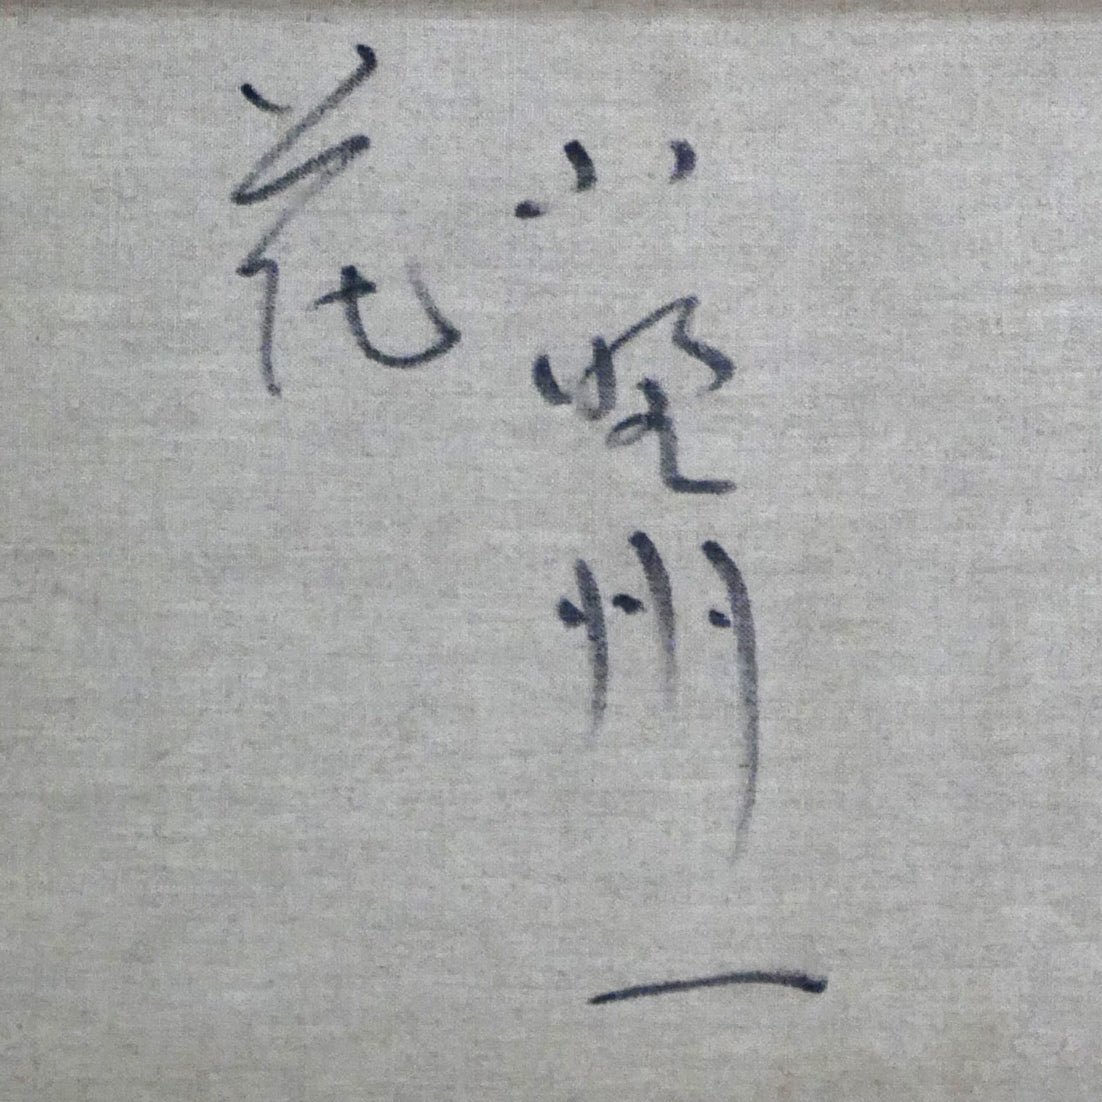 小野州一
花